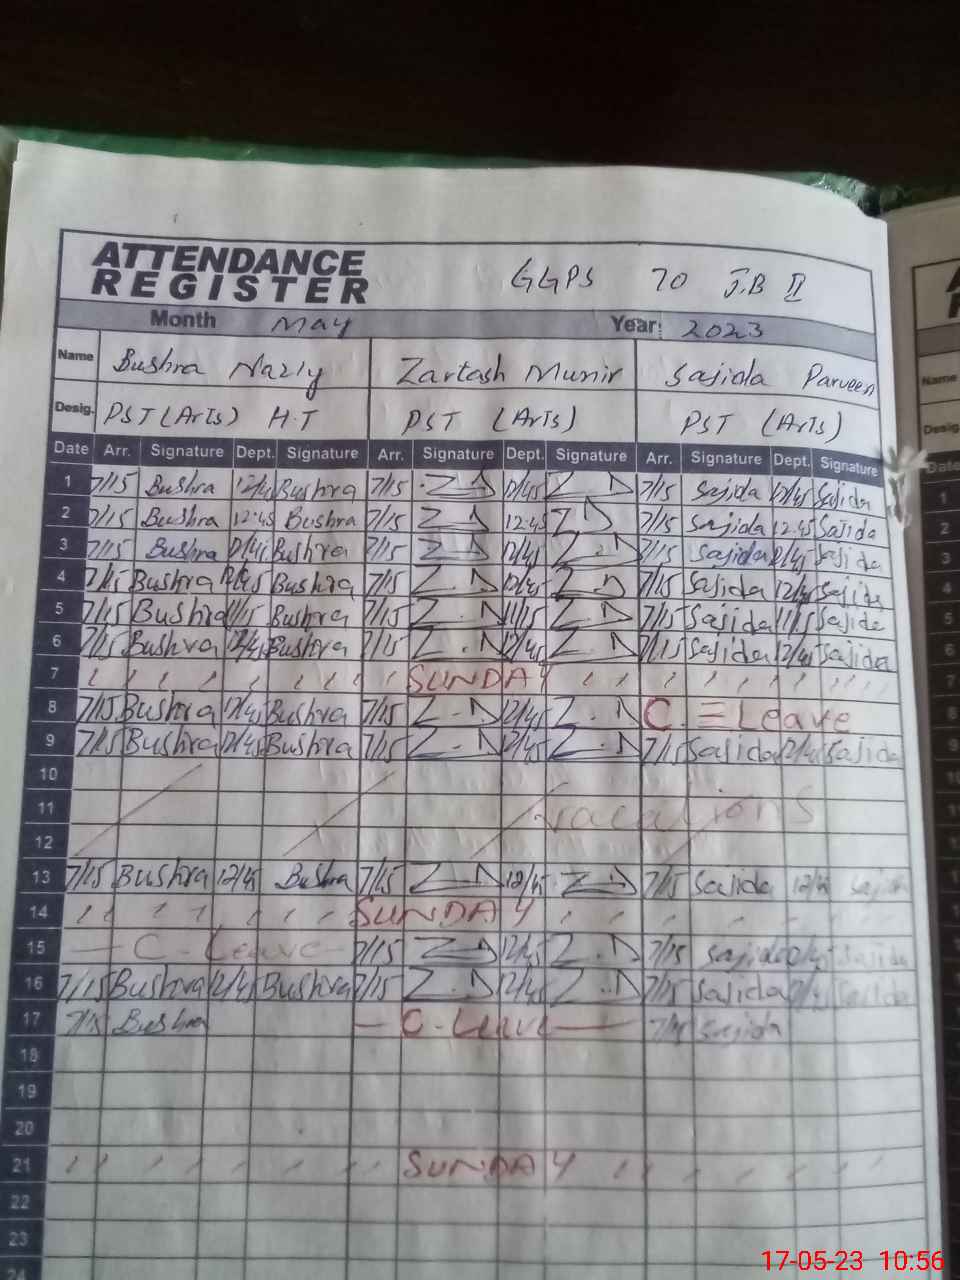 ATTENDANCE REGISTER GGPS 70 J.B II
Month May Year: 2023
Name Bushra Naziy Zartash Munir Sajida Parveen
Desig. PST (Arts) H.T PST (Arts) PST (Arts)
Date Arr. Signature Dept. Signature Arr. Signature Dept. Signature Arr. Signature Dept. Signature
1 7/15 Bushra 12/45 Bushra 7/15 12/45 7/15 Sajida 12/45 Sajida
2 7/15 Bushra 12:45 Bushra 7/15 12:45 7/15 Sajida 12:45 Sajida
3 7/15 Bushra 12/45 Bushra 7/15 12/45 7/15 Sajida 12/45 Sajida
4 7/15 Bushra 12/45 Bushra 7/15 12/45 7/15 Sajida 12/45 Sajida
5 7/15 Bushra 11/15 Bushra 7/15 11/15 7/15 Sajida 11/15 Sajida
6 7/15 Bushra 12/45 Bushra 7/15 12/45 7/15 Sajida 12/45 Sajida
7 SUNDAY
8 7/15 Bushra 12/45 Bushra 7/15 12/45 C. = Leave
9 7/15 Bushra 12/45 Bushra 7/15 12/45 7/15 Sajida 12/45 Sajida
10
11 Vacations
12
13 7/15 Bushra 12/45 Bushra 7/15 12/45 7/15 Sajida 12/45 Sajida
14 SUNDAY
15 — C - Leave — 7/15 12/45 7/15 Sajida 12/45 Sajida
16 7/15 Bushra 12/45 Bushra 7/15 12/45 7/15 Sajida 12/45 Sajida
17 7/15 Bushra — C - Leave — 7/15 Sajida
18
19
20
21 SUNDAY
22
23
24
17-05-23 10:56